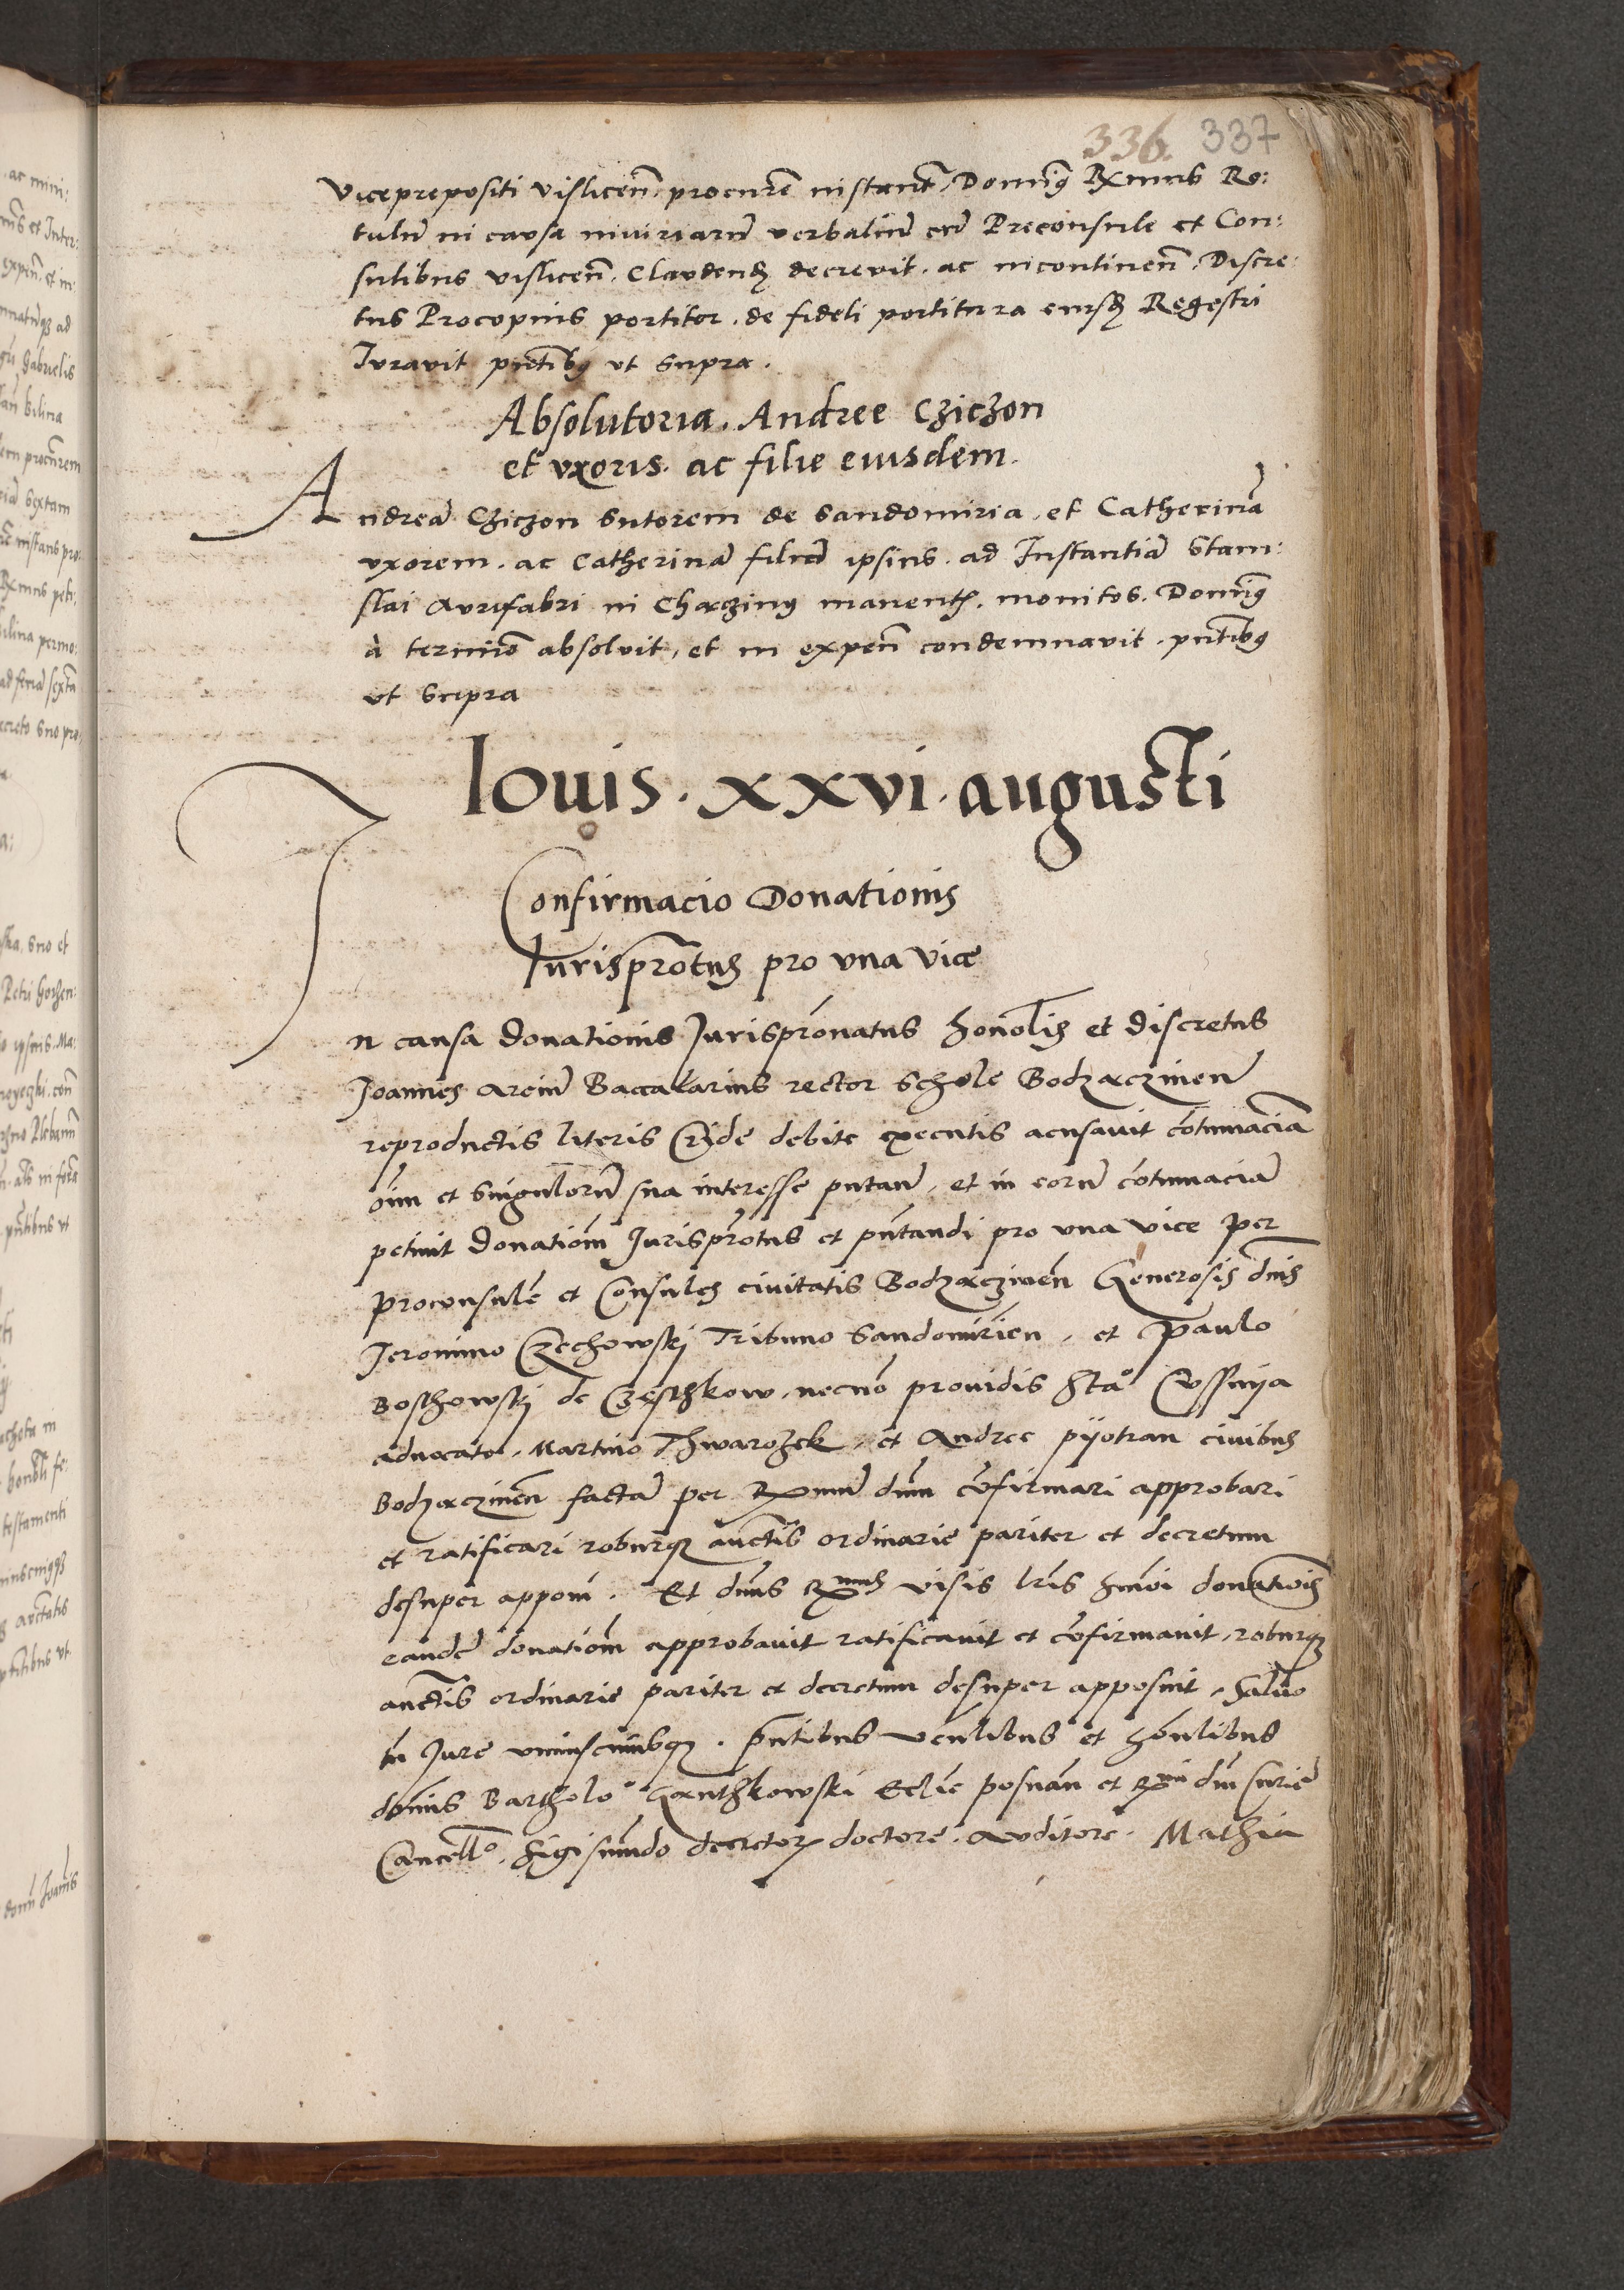 336. 337
Viceprepositi vislicen̄. procur̄e instant̄. Domin9 Rx̄mus Ro:
tulū in causa iniuriarū verbaliū cū Preconsule et Con:
sulibus vislicen̄. Claudend̄ decrevit. ac incontinen̄. Discre:
tus Procopius portitor. de fideli portitura eiusd̄ Regestri
Iuravit pn̄tib9 ut supra.
Absolutoria. Andree Cziczon
et uxoris. ac filie eiusdem.
Andreā Cziczon sutorem de Sandomiria, et Catherinā
uxorem. ac Catherinā filiā ipsius. ad Instantiā Stani:
slai Aurifabri in Chacziny manent̄. monitos. Domin9
à termiō absolvit, et in expen̄ condemnavit. pn̄tib9
ut supra
Iouis. xxvi. augusti
Confirmacio Donationis
Iurisprōtus pro una vice
In causa donationis Jurisprōnatus honol̄is et discretus
Joannes Baccalarius rector schole Bodzaczinen̄
reproductis literis Cride debite executis acusavit cōtumaciā
oīm et singulorū sua interesse putan̄, et in eorū cōtumaciā
petiuit donatiōm Jurisprōtus et pn̄tandi pro una vice per
proconsulē et Consules civitatis Bodzaczinēn Generosis dn̄is
Jeronimo Czechowskj Tribuno Sandomirien, et Paulo
Boschowskj de Czeschkow, necnō prouidis Sta° Cussnija
aduocato, Martino Thwarozek, et Andree pijotran civibus
Bodzaczinēn factā per Rx̄mū dn̄m cōfirmari approbari
et ratificari roburq3 auctīs ordinarie pariter et decretum
desuper apponi. Et dn̄us Rx̄mus visis lr̄is hmōi donatiois
eandē donatiōm approbavit ratificauit et cōfirmauit, roburq3
auctīs ordinarie pariter et decretum desuper apposuit, Saluo
tn̄ Jure uniuscuiusq3. pn̄tibus vēnlibus et hōnlibus
dōnis Bartholo° Ganthkowski Ecl̄ie posnān et Rx̄mi dn̄i Curie
Cancell°, Sigismūdo decretor̄ doctore. Auditore. Mathia